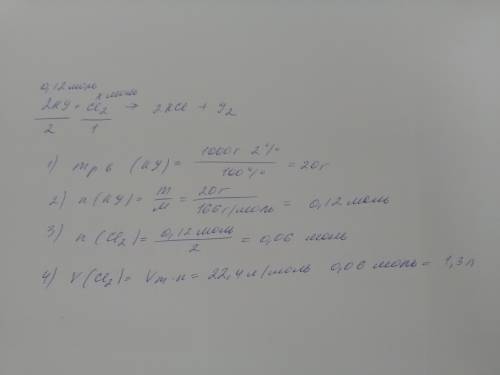 0,12 моль x моль
2KJ + Cl2 → 2KCl + J2
2 1
1) mр.в (KJ) = 1000г · 2% / 100% = 20г
2) n(KJ) = m / M = 20г / 166г/моль = 0,12 моль
3) n(Cl2) = 0,12 моль / 2 = 0,06 моль
4) V(Cl2) = Vm·n = 22,4 л/моль · 0,06 моль = 1,3 л